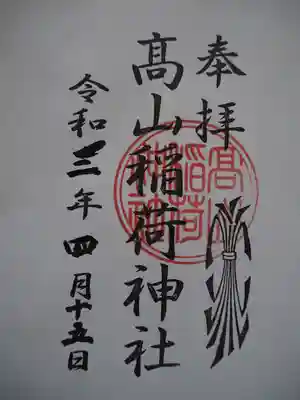 奉拝
髙山稲荷神社
令和三年四月十五日